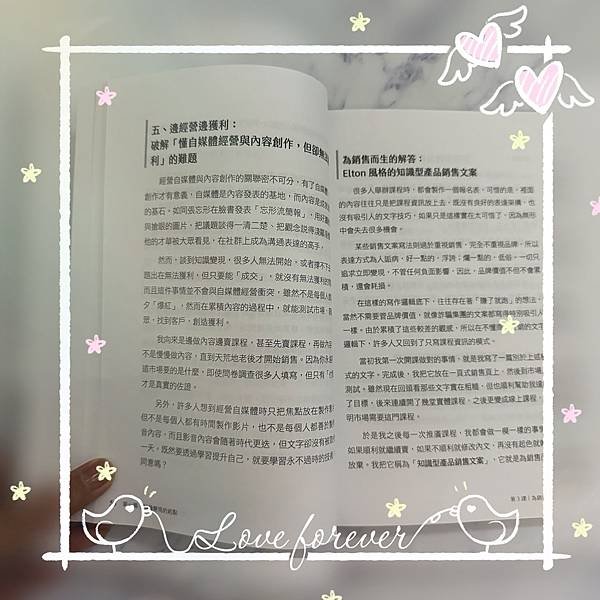 五、邊經營邊獲利：
破解「懂自媒體經營與內容創作，但卻無法
利」的難題
經營自媒體與內容創作的關聯密不可分，有了自媒
創作才有意義，自媒體是內容發表的基地，而內容是成
的基石。如同張忘形在臉書發表「忘形流簡報」，用好
與搶眼的圖片，把議題談得一清二楚、把觀念說得淺顯
他的才華被大眾看見，在社群上成為溝通表達的高手。
然而，談到知識變現，很多人無法開始，或者撐不下
題出在無法獲利，但只要能「成交」，就沒有無法獲利的
而且這件事情並不會與自媒體經營衝突，雖然不是每個人
夕「爆紅」，然而在累積內容的過程中，就能測試市場、
眾，找到客戶，創造獲利。
我向來是邊做內容邊賣課程，甚至先賣課程，再做內
不是慢慢做內容，直到天荒地老後才開始銷售。因為你永
道市場要的是什麼，即使問卷調查很多人填寫，但只有「
才是真實的佐證。
另外，許多人想到經營自媒體時只把焦點放在製作影
但不是每個人都有時間製作影片，也不是每個人都善於製
音內容，而且影音內容會隨著時代更迭，但文字卻沒有被
一天。既然要透過學習提升自己，就要學習永不過時的技
同意嗎？
為銷售而生的解答：
Elton 風格的知識型產品銷售文案
很多人舉辦課程時，都會製作一個報名表，可惜的是，裡面
的內容往往只是把課程資訊放上去，既沒有良好的表達架構，也
沒有吸引人的文字技巧，如果只是這樣實在太可惜了，因為無形
中會失去很多機會。
某些銷售文案寫法則過於重視銷售，完全不重視品牌，所以
表達方式為人詬病，好一點的，浮誇；爛一點的，低俗。一切只
追求立即變現，不管任何負面影響，因此，品牌價值不但不會累
積，還會耗損。
在這樣的寫作邏輯底下，往往存在著「賺了就跑」的想法，
當然不需要管品牌價值，就像詐騙集團的文案都寫得特別吸引人
一樣。由於累積了這些較差的觀感，所以在不懂 銷的文字
邏輯下，許多人又回到了只寫課程資訊的模式。
當初我第一次開課做對的事情，就是我寫了一篇別於上述
式的文字。完成後，我把它放在一頁式銷售頁上，然後到市場
測試。雖然現在回過看那些文字實在粗糙，但也順利幫助我達
了目標，後來連續開了幾堂實體課程，之後更變成線上課程，
明市場需要這門課程。
於是我之後每一次推廣課程，我都會做一模一樣的事情
如果順利就繼續賣，如果不順利就修改內文，再沒有起色就
放棄。我把它稱為「知識型產品銷售文案」，它就是為銷售
第 3 課｜為銷
Love forever